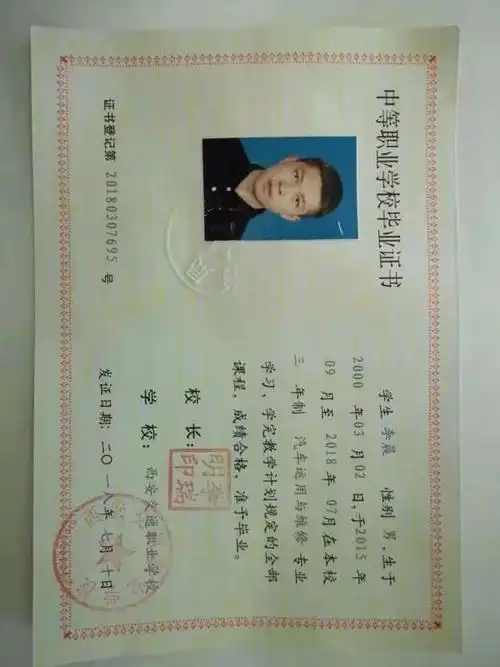 中等职业学校毕业证书
证书登记第 20180307695 号
学生 李晨 性别 男，生于
2000 年 03 月 02 日，于 2015 年
09 月至 2018 年 07 月在本校
三 年制 汽车运用与维修 专业
学习，学完教学计划规定的全部
课程，成绩合格，准予毕业。
校 长：
李瑞明印
学 校：西安交通职业学校
发证日期：二〇一八年 七月 十日